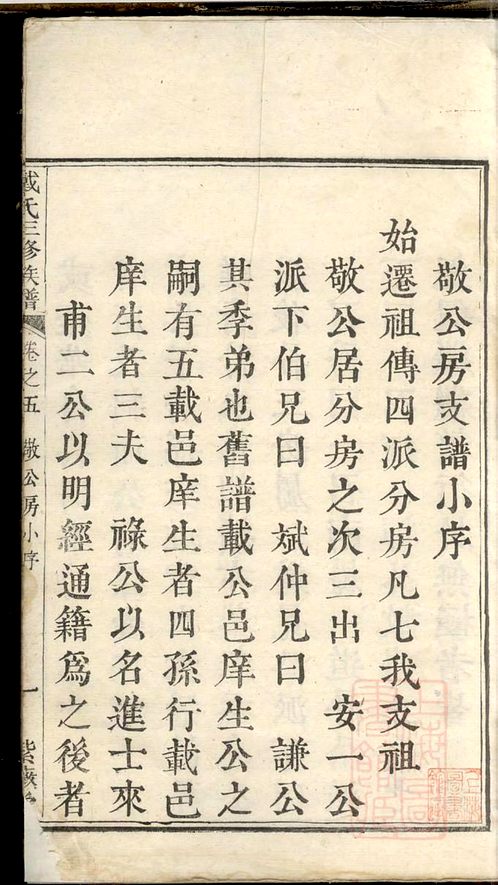 敬公房支譜小序
始遷祖傳四派分房凡七我支祖
敬公居分房之次三出 安一公
派下伯兄曰 斌仲兄曰 謙公
其季弟也舊譜載公邑庠生公之
嗣有五載邑庠生者四孫行載邑
庠生者三夫 祿公以名進士來
甫二公以明經通籍爲之後者
戴氏三修族譜 卷之五 敬公房小序 一